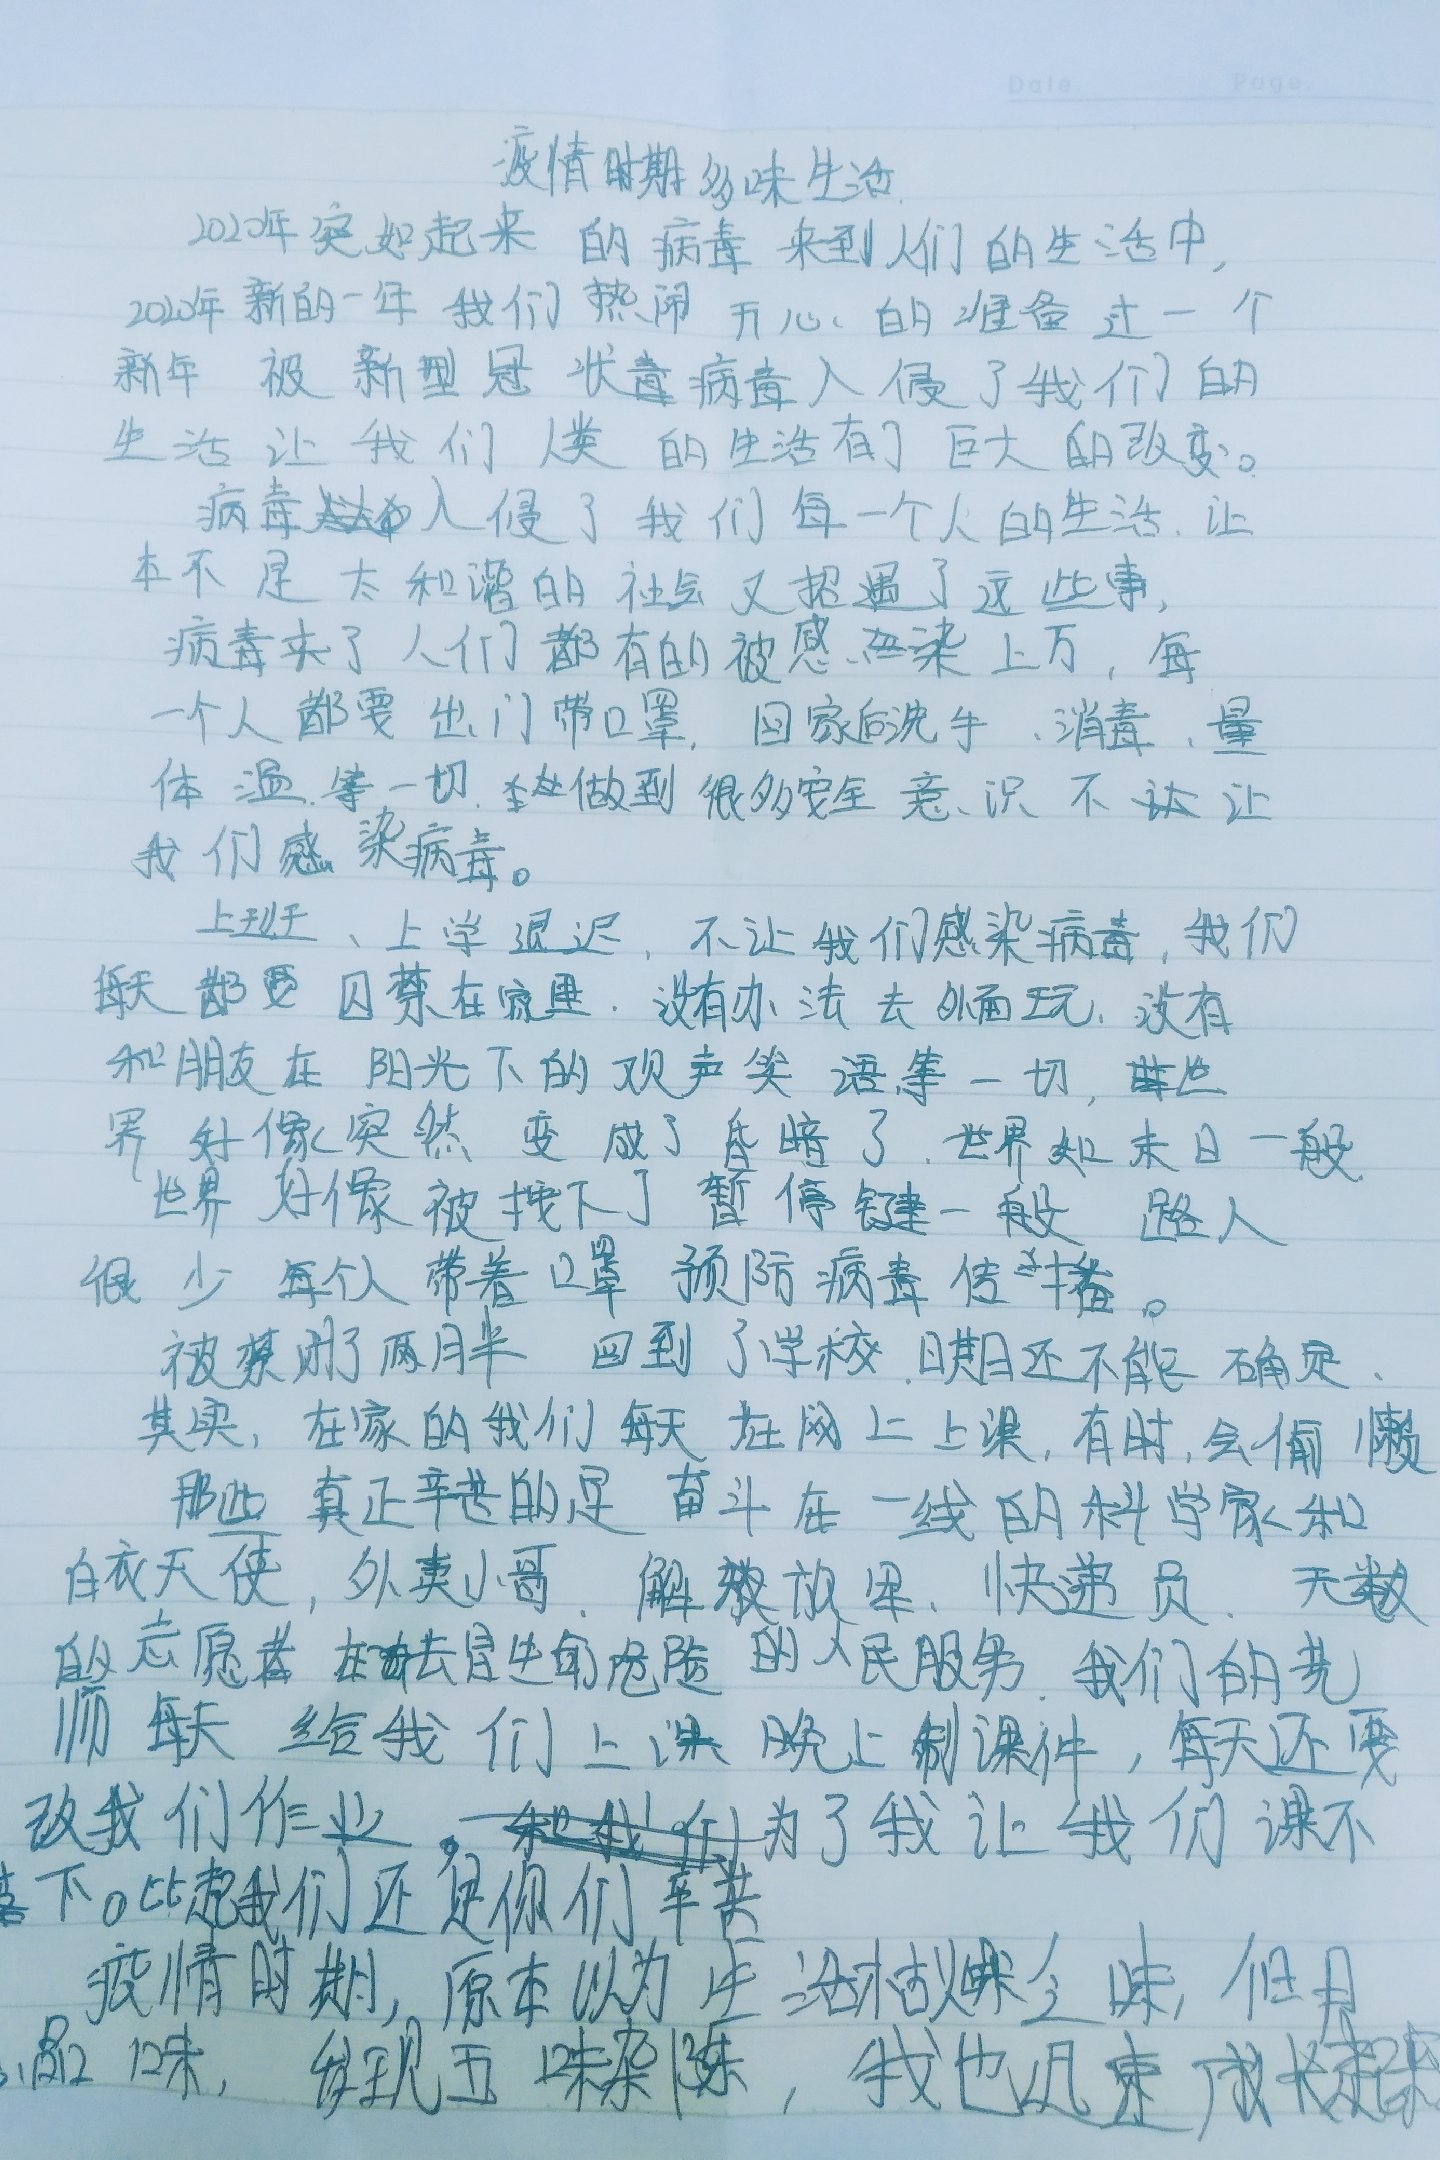 Date. Page.
疫情时期多味生活
2020年突如起来的病毒来到人们的生活中,
2020年新的一年我们热闹开心的准备过一个
新年 被新型冠状毒病毒入侵了我们的
生活让我们人类的生活有了巨大的改变。
病毒入侵了我们每一个人的生活、让
本不是太和谐的社会又招遇了这些事,
病毒来了人们都有的被感染上万,每
一个人都要出门带口罩,回家后洗手、消毒、量
体温、等一切、做到很多安全意识不让
我们感染病毒。
上班、上学退迟,不让我们感染病毒,我们
每天都要囚禁在家里、没有办法去外面玩、没有
和朋友在阳光下的欢声笑语等一切,世
界好像突然变成了昏暗了、世界如末日一般
世界好像被按下了暂停键一般 路人
很少每个人带着口罩预防病毒传播。
被禁闭了两月半 回到了学校日期还不能确定、
其实,在家的我们每天在网上上课,有时,会偷懒
那些真正辛苦的是奋斗在一线的科学家和
白衣天使,外卖小哥、解放军、快递员、无数
的志愿者在去冒生命危险的人民服务、我们的老
师每天给我们上课晚上制课件,每天还要
改我们作业,为了我让我们课不
落下。比起我们还是你们辛苦
疫情时期,原本以为生活枯燥乏味,但月
品味,发现五味杂陈,我也迅速成长起来